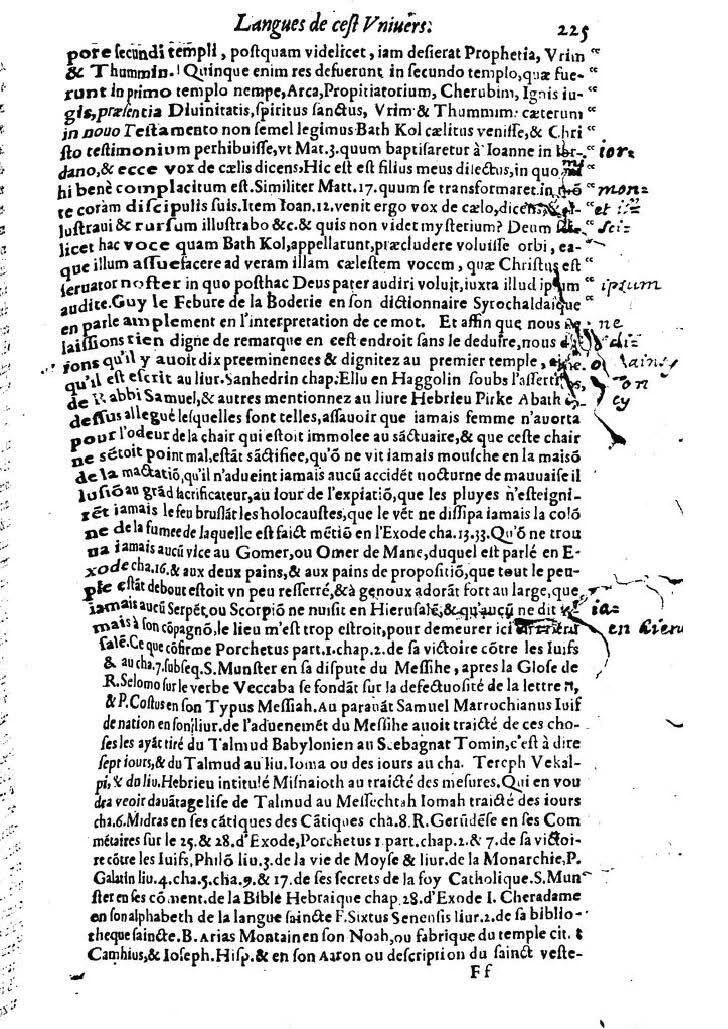 Langues de cest Vnivers. 225
pore secundi templi, postquam videlicet, iam desierat Prophetia, Vrim “
& Thummin. Quinque enim res defuerunt in secundo templo, quæ fue- “
runt in primo templo nempe, Arca, Propitiatorium, Cherubim, Ignis iu- “
gis, præsentia Diuinitatis, spiritus sanctus, Vrim & Thummim: cæterum “
in nouo Testamento non semel legimus Bath Kol cælitus venisse, & Chri “
sto testimonium perhibuisse, vt Mat. 3. quum baptisaretur à Ioanne in “ ior=
dano, & ecce vox de cælis dicens, Hic est est filius meus dilectus, in quo mi “
hi benè complacitum est. Similiter Matt. 17. quum se transformaret in “ mon=
te coràm discipulis suis. Item Ioan. 12. venit ergo vox de cælo, dicens, “ et il=
lustraui & rursum illustrabo &c. & quis non videt mysterium? Deum “ sci-
licet hac voce quam Bath Kol, appellarunt, præcludere voluisse orbi, ea- “
que illum assuefacere ad veram illam cælestem vocem, quæ Christus est “
seruator noster in quo posthac Deus pater audiri voluit, iuxta illud ipsum “ ipsum
audite. Guy le Febure de la Boderie en son dictionnaire Syrochaldaique “
en parle amplement en l'interpretation de ce mot. Et affin que nous ne
laissions rien digne de remarque en cest endroit sans le deduire, nous di=
rons qu'il y auoit dix preeminences & dignitez au premier temple, ainsy
qu'il est escrit au liur. Sanhedrin chap: Ellu en Haggolin soubs l'assertion
de Rabbi Samuel, & autres mentionnez au liure Hebrieu Pirke Abath cy
dessus allegué lesquelles sont telles, assauoir que iamais femme n'auorta
pour l'odeur de la chair qui estoit immolee au sãctuaire, & que ceste chair
ne sẽtoit point mal, estãt sãctifiee, qu'õ ne vit iamais mousche en la maisõ
de la mactatiõ, qu'il n'adueint iamais aucũ accidẽt nocturne de mauuaise il
lusiõ au grãd sacrificateur, au iour de l'expiatiõ, que les pluyes n'esteigni-
rẽt iamais le feu bruslãt les holocaustes, que le vẽt ne dissipa iamais la colõ
ne de la fumee de laquelle est faict mẽtiõ en l'Exode cha. 13. 33. Qu'õ ne trou
ua iamais aucũ vice au Gomer, ou Omer de Mane, duquel est parlé en E-
xode cha. 16. & aux deux pains, & aux pains de propositiõ, que tout le peu-
ple estãt debout estoit vn peu resserré, & à genoux adorãt fort au large, que
iamais aucũ Serpẽt, ou Scorpiõ ne nuisit en Hierusalẽ, & qu'aucũ ne dit ia=
mais à son cõpagnõ, le lieu m'est trop estroit, pour demeurer ici en hieru
salẽ. Ce que cõfirme Porchetus part. 1. chap. 2. de sa victoire cõtre les Iuifs
& au cha. 7. subseq. S. Munster en sa dispute du Messihe, apres la Glose de
R. Selomo sur le verbe Veccaba se fondãt sur la defectuosité de la lettre ה,
& P. Costus en son Typus Messiah. Au parauãt Samuel Marrochianus Iuif
de nation en son liur. de l'aduenemẽt du Messihe auoit traicté de ces cho-
ses les ayãt tiré du Talmud Babylonien au Seebagnat Tomin, c'est à dire
sept iours, & du Talmud au liu. Ioma ou des iours au cha. Tereph Vekal-
pi, & du liu. Hebrieu intitulé Misnaioth au traicté des mesures. Qui en vou
dra veoir dauãtage lise de Talmud au Messechtah Iomah traicté des iours
cha. 6. Midras en ses cãtiques des Cãtiques cha. 8. R. Gerũdẽse en ses Com
mẽtaires sur le 25. & 28. d'Exode, Porchetus 1. part. chap. 2. & 7. de sa victoi-
re cõtre les Iuifs, Philõ liu. 3. de la vie de Moyse & liur. de la Monarchie, P.
Galatin liu. 4. cha. 5. cha. 9. & 17. de ses secrets de la foy Catholique. S. Mun
ster en ses cõment. de la Bible Hebraique chap. 28. d'Exode I. Cheradame
en son alphabeth de la langue saincte F. Sixtus Senensis liur. 2. de sa biblio-
theque saincte. B. Arias Montain en son Noah, ou fabrique du temple cit. &
Camhius, & Ioseph. Hisp. & en son Aaron ou description du sainct veste-
Ff